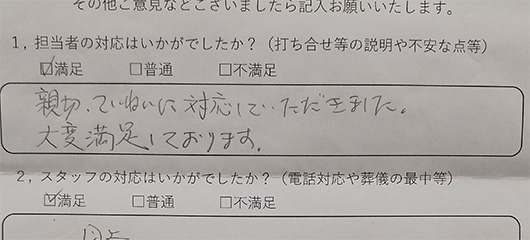 その他ご意見などございましたら記入お願いいたします。
1, 担当者の対応はいかがでしたか？（打ち合せ等の説明や不安な点等）
☑満足 □普通 □不満足
親切、ていねいに対応していただきました。
大変満足しております。
2, スタッフの対応はいかがでしたか？（電話対応や葬儀の最中等）
☑満足 □普通 □不満足